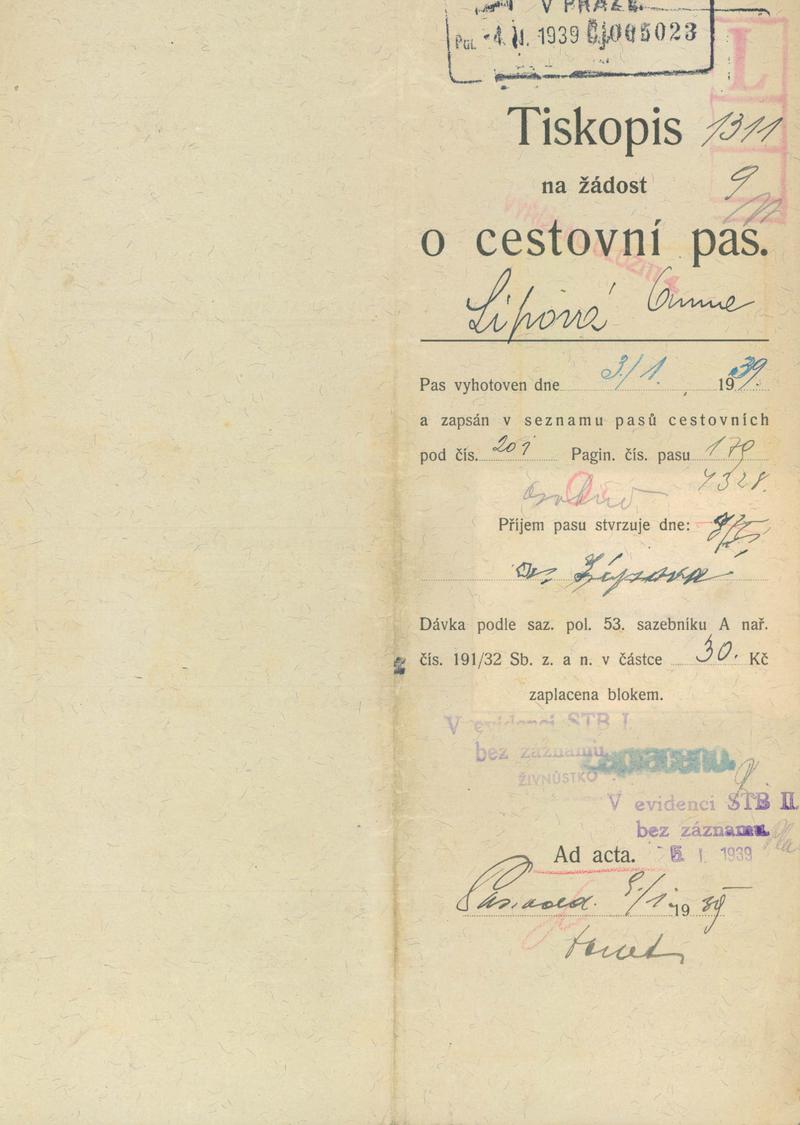 V PRAZE
Pol. -4. 1. 1939 Čj. 005023
L
Tiskopis 1311
na žádost 9
o cestovní pas.
Lípová Anna
Pas vyhotoven dne 3/1. 1939.
a zapsán v seznamu pasů cestovních
pod čís. 201 Pagin. čís. pasu 179
4328.
Příjem pasu stvrzuje dne:
Lípová
Dávka podle saz. pol. 53. sazebníku A nař.
čís. 191/32 Sb. z. a n. v částce 30. Kč
zaplacena blokem.
V evidenci STB I.
bez záznamu.
zaplaceno.
ŽIVNOSTKO
V evidenci STB II.
bez záznamu.
Ad acta. 5. I. 1939
9/1 1939